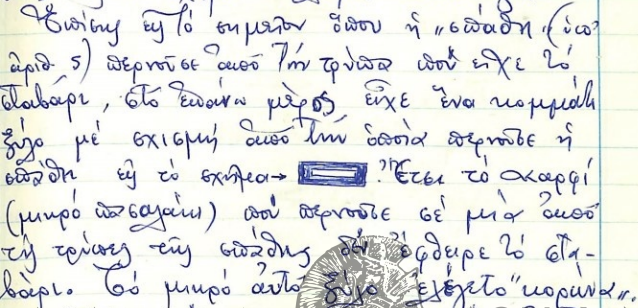 Ἐπίσης εἰς τὸ σημεῖον ὅπου ἡ „σπάθη„ (ὑπ'
ἀριθ. 5) περνοῦσε ἀπὸ τὴν τρύπα ποὺ εἶχε τὸ
σταβάρι, στὸ ἐπάνω μέρος εἶχε ἕνα κομμάτι
ξύλο μὲ σχισμὴ ἀπὸ τὴν ὁποία περνοῦσε ἡ
σπάθη εἰς τὸ σχῆμα→ Ἔτσι τὸ καρφί
(μικρὸ πασαλάκι) ποὺ περνοῦσε σὲ μιὰ ἀπὸ
τὶς τρύπες τῆς σπάθης δὲν ἔφθειρε τὸ στα-
βάρι. Τὸ μικρὸ αὐτὸ ξύλο ἐλέγετο "κορώνα„